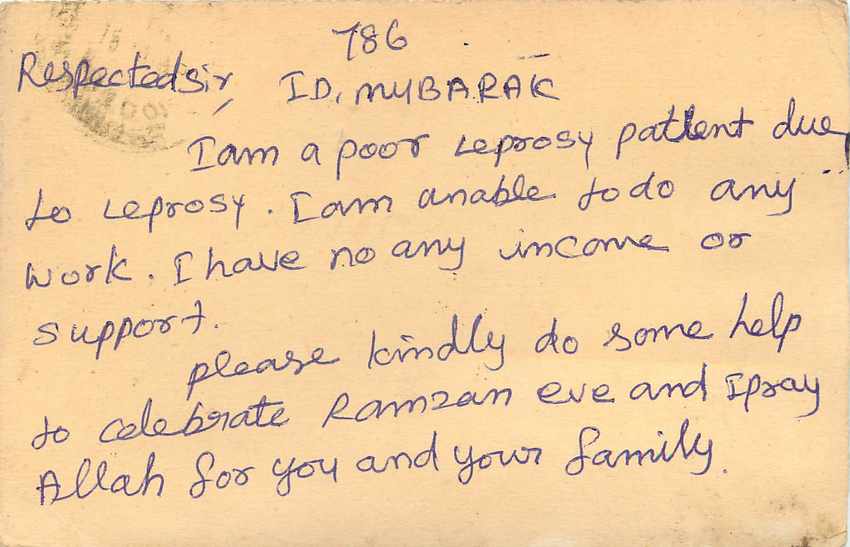 786
Respected sir, ID. MUBARAK
I am a poor leprosy patient due
to leprosy. I am anable to do any
work. I have no any income or
support.
please kindly do some help
to celebrate Ramzan eve and I pray
Allah for you and your family.